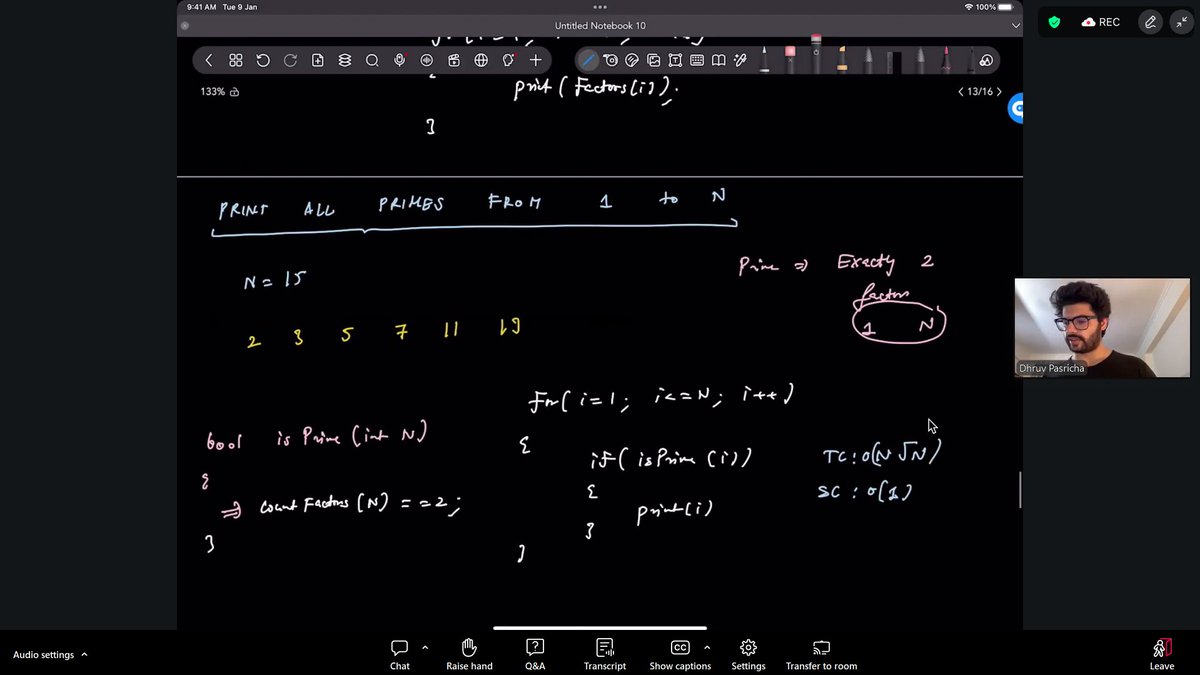 9:41 AM Tue 9 Jan
100%
Untitled Notebook 10
REC
133%
13/16
print (Factors[i]);
}
PRINT ALL PRIMES FROM 1 to N
N = 15
Prime => Exactly 2
factors
1 N
2 3 5 7 11 13
for( i=1; i<=N; i++)
{
if( isPrime (i))
{
print(i)
}
}
TC: O(N √N)
SC : O(1)
bool isPrime (int N)
{
=> count Factors (N) == 2;
}
Dhruv Pasricha
Audio settings
Chat
Raise hand
Q&A
Transcript
CC
Show captions
Settings
Transfer to room
Leave